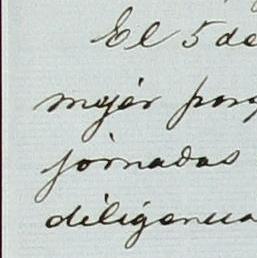 El 5 de
mejor porq
jornadas
diligencia